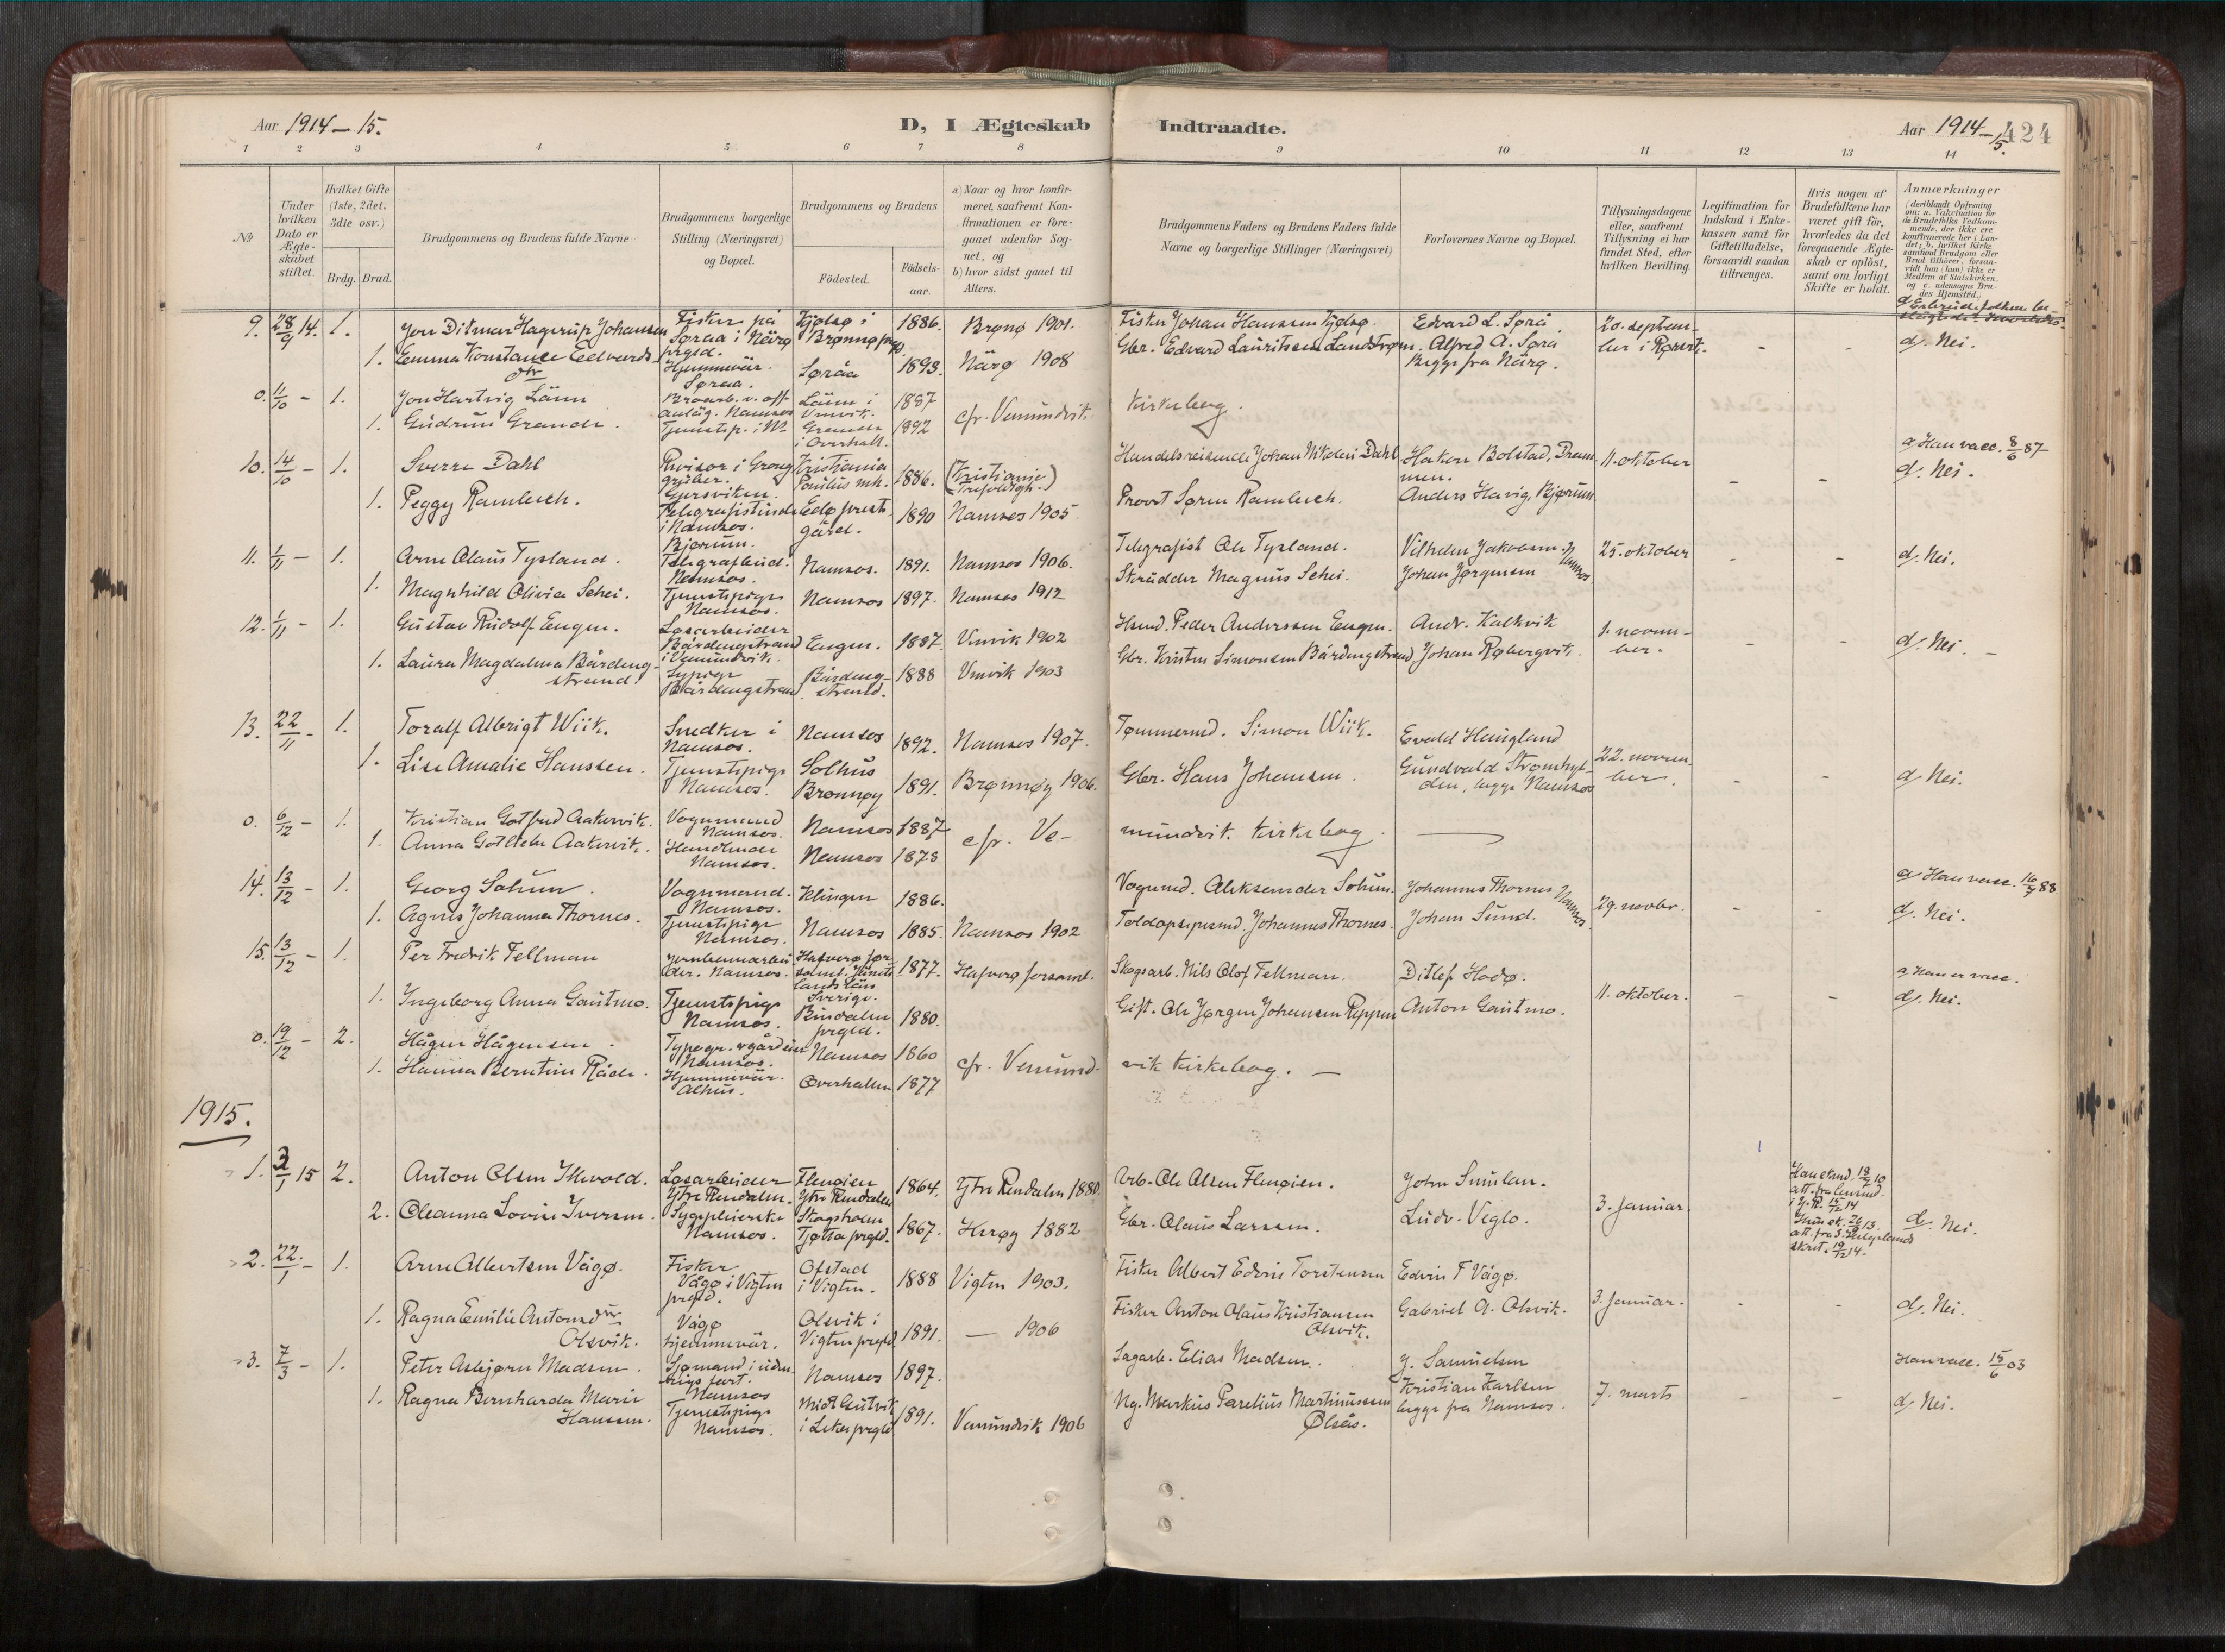 Aar 1914–15.
D, I Ægteskab Indtraadte.
Aar 1914–15. 424
1 2 3 4 5 6 7 8 9 10 11 12 13 14
№
Under hvilken Dato er Ægteskabet stiftet.
Hvilket Gifte (1ste, 2det, 3die osv.)
Brdg. Brud.
Brudgommens og Brudens fulde Navne
Brudgommens borgerlige Stilling (Næringsvei) og Bopæl.
Brudgommens og Brudens
Födested.
Födselsaar.
a) Naar og hvor konfirmeret, saafremt Konfirmationen er foregaaet udenfor Sognet, og
b) hvor sidst gaaet til Alters.
Brudgommens Faders og Brudens Faders fulde Navne og borgerlige Stillinger (Næringsvei)
Forlovernes Navne og Bopæl.
Tillysningsdagene eller, saafremt Tillysning ei har fundet Sted, efter hvilken Bevilling.
Legitimation for Indskud i Enkekassen samt for Giftetilladelse, forsaavidt saadan tiltrænges.
Hvis nogen af Brudefolkene har været gift för, hvorledes da det foregaaende Ægteskab er oplöst, samt om lovligt Skifte er holdt.
Anmærkninger (deriblandt Oplysning om: a. Vakcination for de Brudefolks Vedkommende, der ikke ere konfirmerede her i Landet; b. hvilket Kirkesamfund Brudgom eller Brud tilhörer, forsaavidt han (hun) ikke er Medlem af Statskirken, og c. udensogns Brudes Hjemsted.)
9. 28/9 14. 1. Jon Ditmar Hagerup Johansen Fisker på Søraa i Närø prgld. Kjølsø i Brønnø prgld. 1886. Brønø 1901. Fisker Johan Hanssen Kjølsø. Edvard L. Søraa 20. septem-
1. Emma Konstance Edvardsdtr Hjemmevär. Søraa. Søråa 1893. Närø 1908 Gbr. Edvard Lauritssen Landstrøm. Alfred A. Søraa Begge fra Närø. ber i Rørvik. - - d. Nei.
0. 11/10 - 1. Jon Hartvig Länn Namsos Länn i Vmvik. 1887 cfr. Vemundvik Kirkebog.
1. Gudrun Grande. Tjenestep. i Ns. Grande i Overhall. 1892
10. 14/10 - 1. Sverre Dahl Revisor i Grong gruber. Gjersviken. Kristiania 1886. (Kristiania Trefoldigh.) Handelsreisende Johan Nikolai Dahl Hakon Bolstad, Drammen. 11. oktober - - a Han vacc. 8/6 87
1. Peggy Rambech. Telegrafistinde i Namsos. Bjørum. Edø prestegård. 1890 Namsos 1905 Provst Søren Rambech. Anders Havig, Bjørum d. Nei.
11. 1/11 - 1. Arne Olaus Tysland. Telegrafbud. Namsos. Namsos. 1891. Namsos 1906. Telegrafist Ole Tysland. Vilhelm Jakobsen. 25. oktober - - d. Nei.
1. Magnhild Olivia Schei. Tjenestepige Namsos. Namsos 1897. Namsos 1912 Skrädder Magnus Schei. Johan Jørgensen Namsos
12. 1/11 - 1. Gustav Rudolf Engen. Løsarbeider Bårdengstrand i Vemundvik. Engen. 1887. Vmvik 1902 Hsmd. Peder Anderssen Engen. Andr. Kalkvik 1. november. - - d. Nei.
1. Laura Magdalena Bårdengstrand. Sypige Bårdengstrand Bårdengstrand. 1888 Vmvik 1903 Gbr. Kristen Simonsen Bårdengstrand Johan Røbergvik.
13. 22/11 - 1. Toralf Albrigt Wiik. Snedker i Namsos. Namsos 1892. Namsos 1907. Tømmermd. Simon Wiik. Evald Haugland 22. november. - - d. Nei.
1. Lise Amalie Hanssen. Tjenestepige Namsos. Solhus Brønnøy 1891. Brønnøy 1906. Gbr. Hans Johansen. Gundvald Strømhylden, begge Namsos
0. 6/12 - 1. Kristian Gotfred Aakervik. Vognmand Namsos. Namsos 1887 cfr. Vemundvik. Kirkebog.
1. Anna Aakervik. Namsos. Namsos 1878
14. 13/12 - 1. Georg Solum. Vognmand. Namsos. Klingen 1886. Vognmd. Aleksander Solum. Johannes Thornes 29. novbr. - - a Han vacc. 16/7 88
1. Agnes Johanna Thornes. Tjenestepige Namsos. Namsos 1885. Namsos 1902 Toldopsynsmd. Johannes Thornes. Johan Sund. Namsos d. Nei.
15. 13/12 - 1. Per Fredrik Fellman Jernbanearbeider. Namsos. Hafverø forsaml. Jämtlands Län Sverige. 1877. Hafverø forsaml. Skogsarb. Nils Olof Fellman. Ditlef Hodø. 11. oktober. - - a Han er vacc.
1. Ingeborg Anna Gautmo. Tjenestepige Namsos. Bindalen prgld. 1880. Gift. Ole Jørgen Johansen Reppen Anton Gautmo. d. Nei.
0. 19/12 - 2. Hågen Hågensen. Typogr. Namsos. Namsos 1860 cfr. Vemundvik Kirkebog. —
1. Hanna Berntine Råde. Hjemmevär. Overhallen 1877
1915.
1. 3/1 15 2. Anton Olsen Løsarbeider Ytre Rendalen. Flenøien Ytre Rendalen 1864. Ytre Rendalen 1880. Arb. Ole Olsen Flenøien. John 3. Januar
2. Oleanna Lovise Iversen. Sygepleierske Namsos. Skogsholm Tjøtta prgld. 1867. Herøy 1882 Gbr. Olaus Larssen. Ludv. Veglo. d. Nei.
2. 22/1 - 1. Arne Albertsen Vågø. Fisker Vågø i Vigten prgld. Ofstad i Vigten. 1888 Vigten 1903. Fisker Albert Edvin Torstensen Edvin T Vågø. 3. Januar. - - d. Nei.
1. Ragna Emilie Antonsdtr Olsvik. Vågø hjemmevär. Olsvik i Vigten prgld 1891. — 1906 Fisker Anton Olaus Kristiansen Olsvik. Gabriel A. Olsvik.
3. 7/3 - 1. Peter Asbjørn Madsen. Sjømand i udenrigs fart. Namsos Namsos 1897. Sagarb. Elias Madsen. J. Samuelsen 7. marts - - Han vacc. 15/6 03
1. Ragna Bernharda Marie Hanssen. Tjenestepige Namsos. i Leka prgld 1891. Vemundvik 1906 Ng. Markus Parelius Martinussen Ølsås. Kristian Karlsen begge fra Namsos. d. Nei.